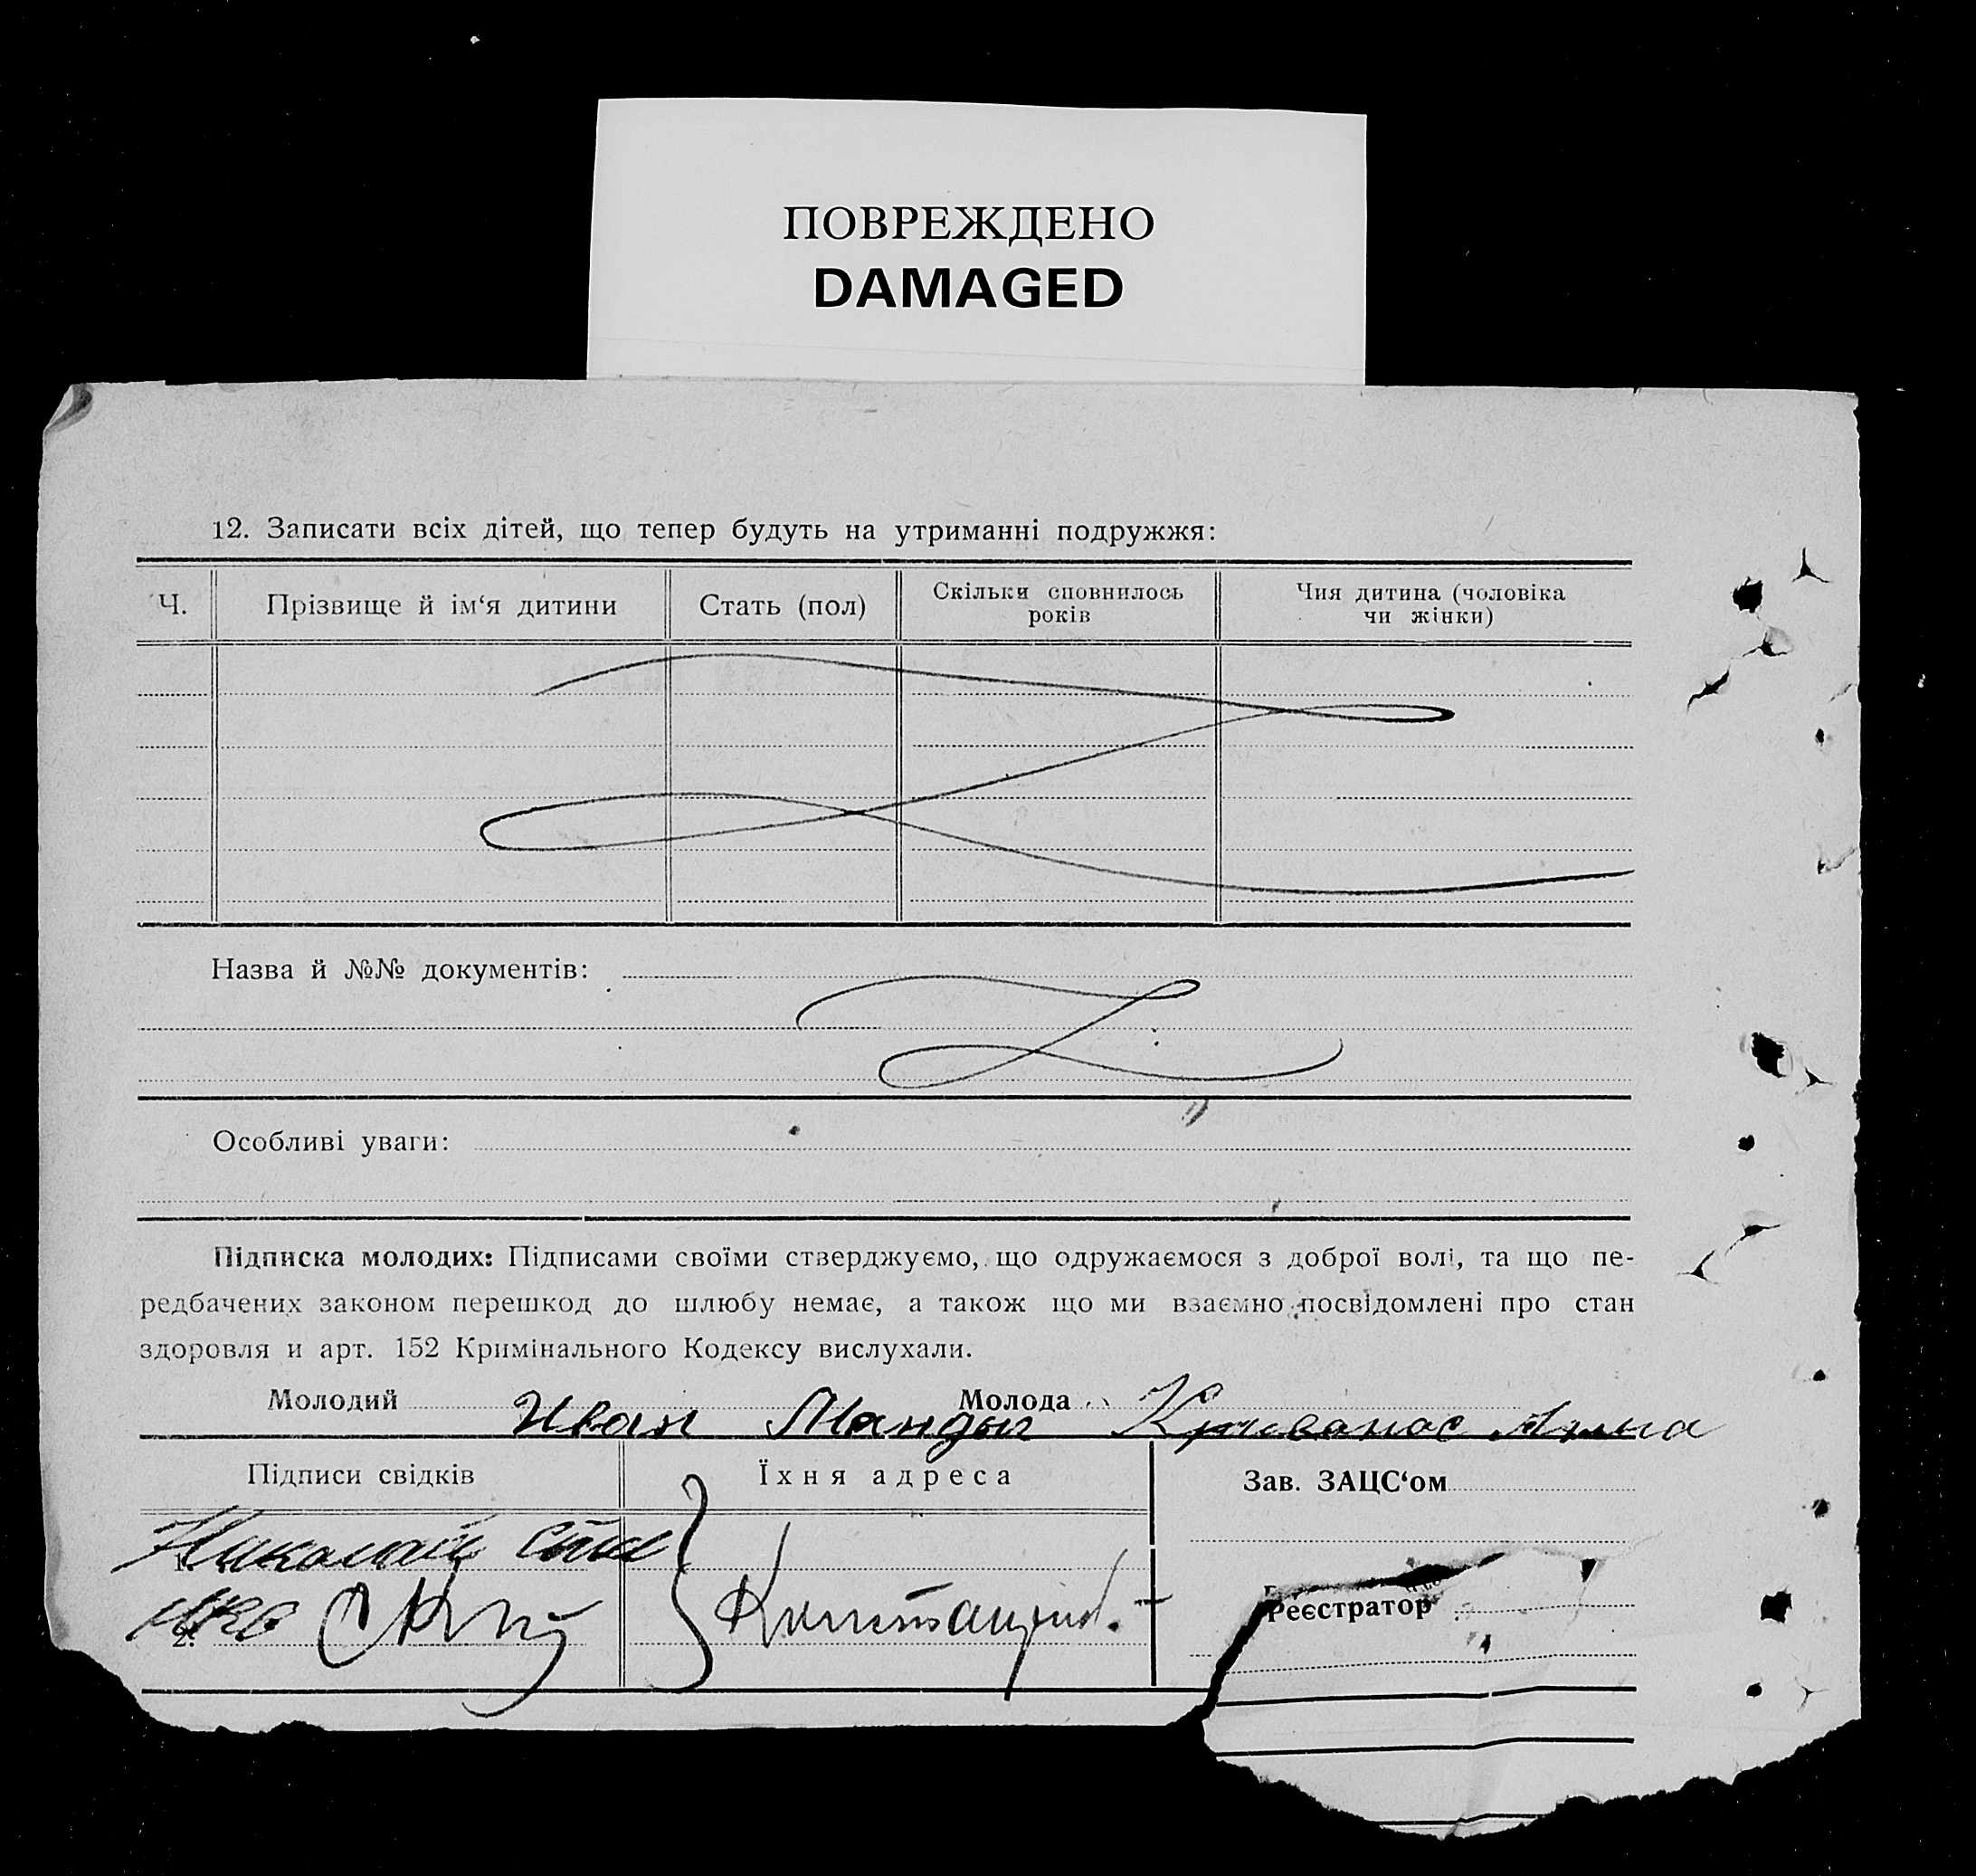 ПОВРЕЖДЕНО
DAMAGED
12. Записати всіх дітей, що тепер будуть на утриманні подружжя:
Ч.
Прізвище й ім‘я дитини
Стать (пол)
Скільки сповнилось
років
Чия дитина (чоловіка
чи жінки)
Назва й №№ документів:
Особливі уваги:
Підписка молодих: Підписами своїми стверджуємо, що одружаємося з доброї волі, та що пе-
редбачених законом перешкод до шлюбу немає, а також що ми взаємно посвідомлені про стан
здоровля и арт. 152 Кримінального Кодексу вислухали.
Молодий Иван Манды Молода Анна
Підписи свідків
Їхня адреса
Зав. ЗАЦС‘ом
1. Николай
2.
Реєстратор